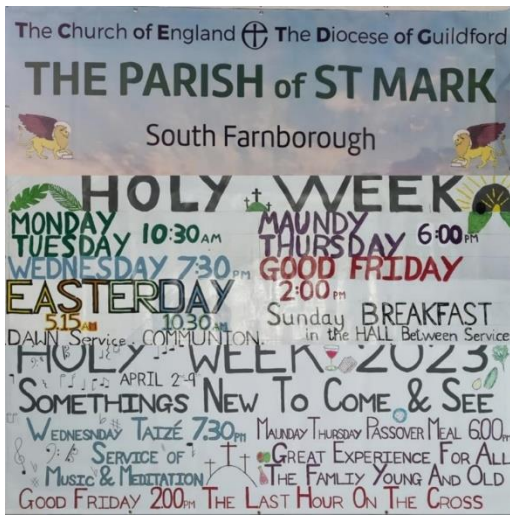 The Church of England The Diocese of Guildford
THE PARISH of ST MARK
South Farnborough
HOLY WEEK
MONDAY
TUESDAY 10:30 AM
WEDNESDAY 7:30 PM
MAUNDY
THURSDAY 6:00 PM
GOOD FRIDAY
2:00 PM
EASTERDAY
5.15 AM 10.30 AM
DAWN Service COMMUNION
Sunday BREAKFAST
in the HALL Between Service
HOLY WEEK 2023
APRIL 2-9
SOMETHINGS NEW TO COME & SEE
WEDNESNDAY TAIZÉ 7.30PM
SERVICE OF
MUSIC & MEDITATION
MAUNDAY THURSDAY PASSOVER MEAL 6.00PM
GREAT EXPERIENCE FOR ALL
THE FAMLIY YOUNG AND OLD
GOOD FRIDAY 2.00PM THE LAST HOUR ON THE CROSS